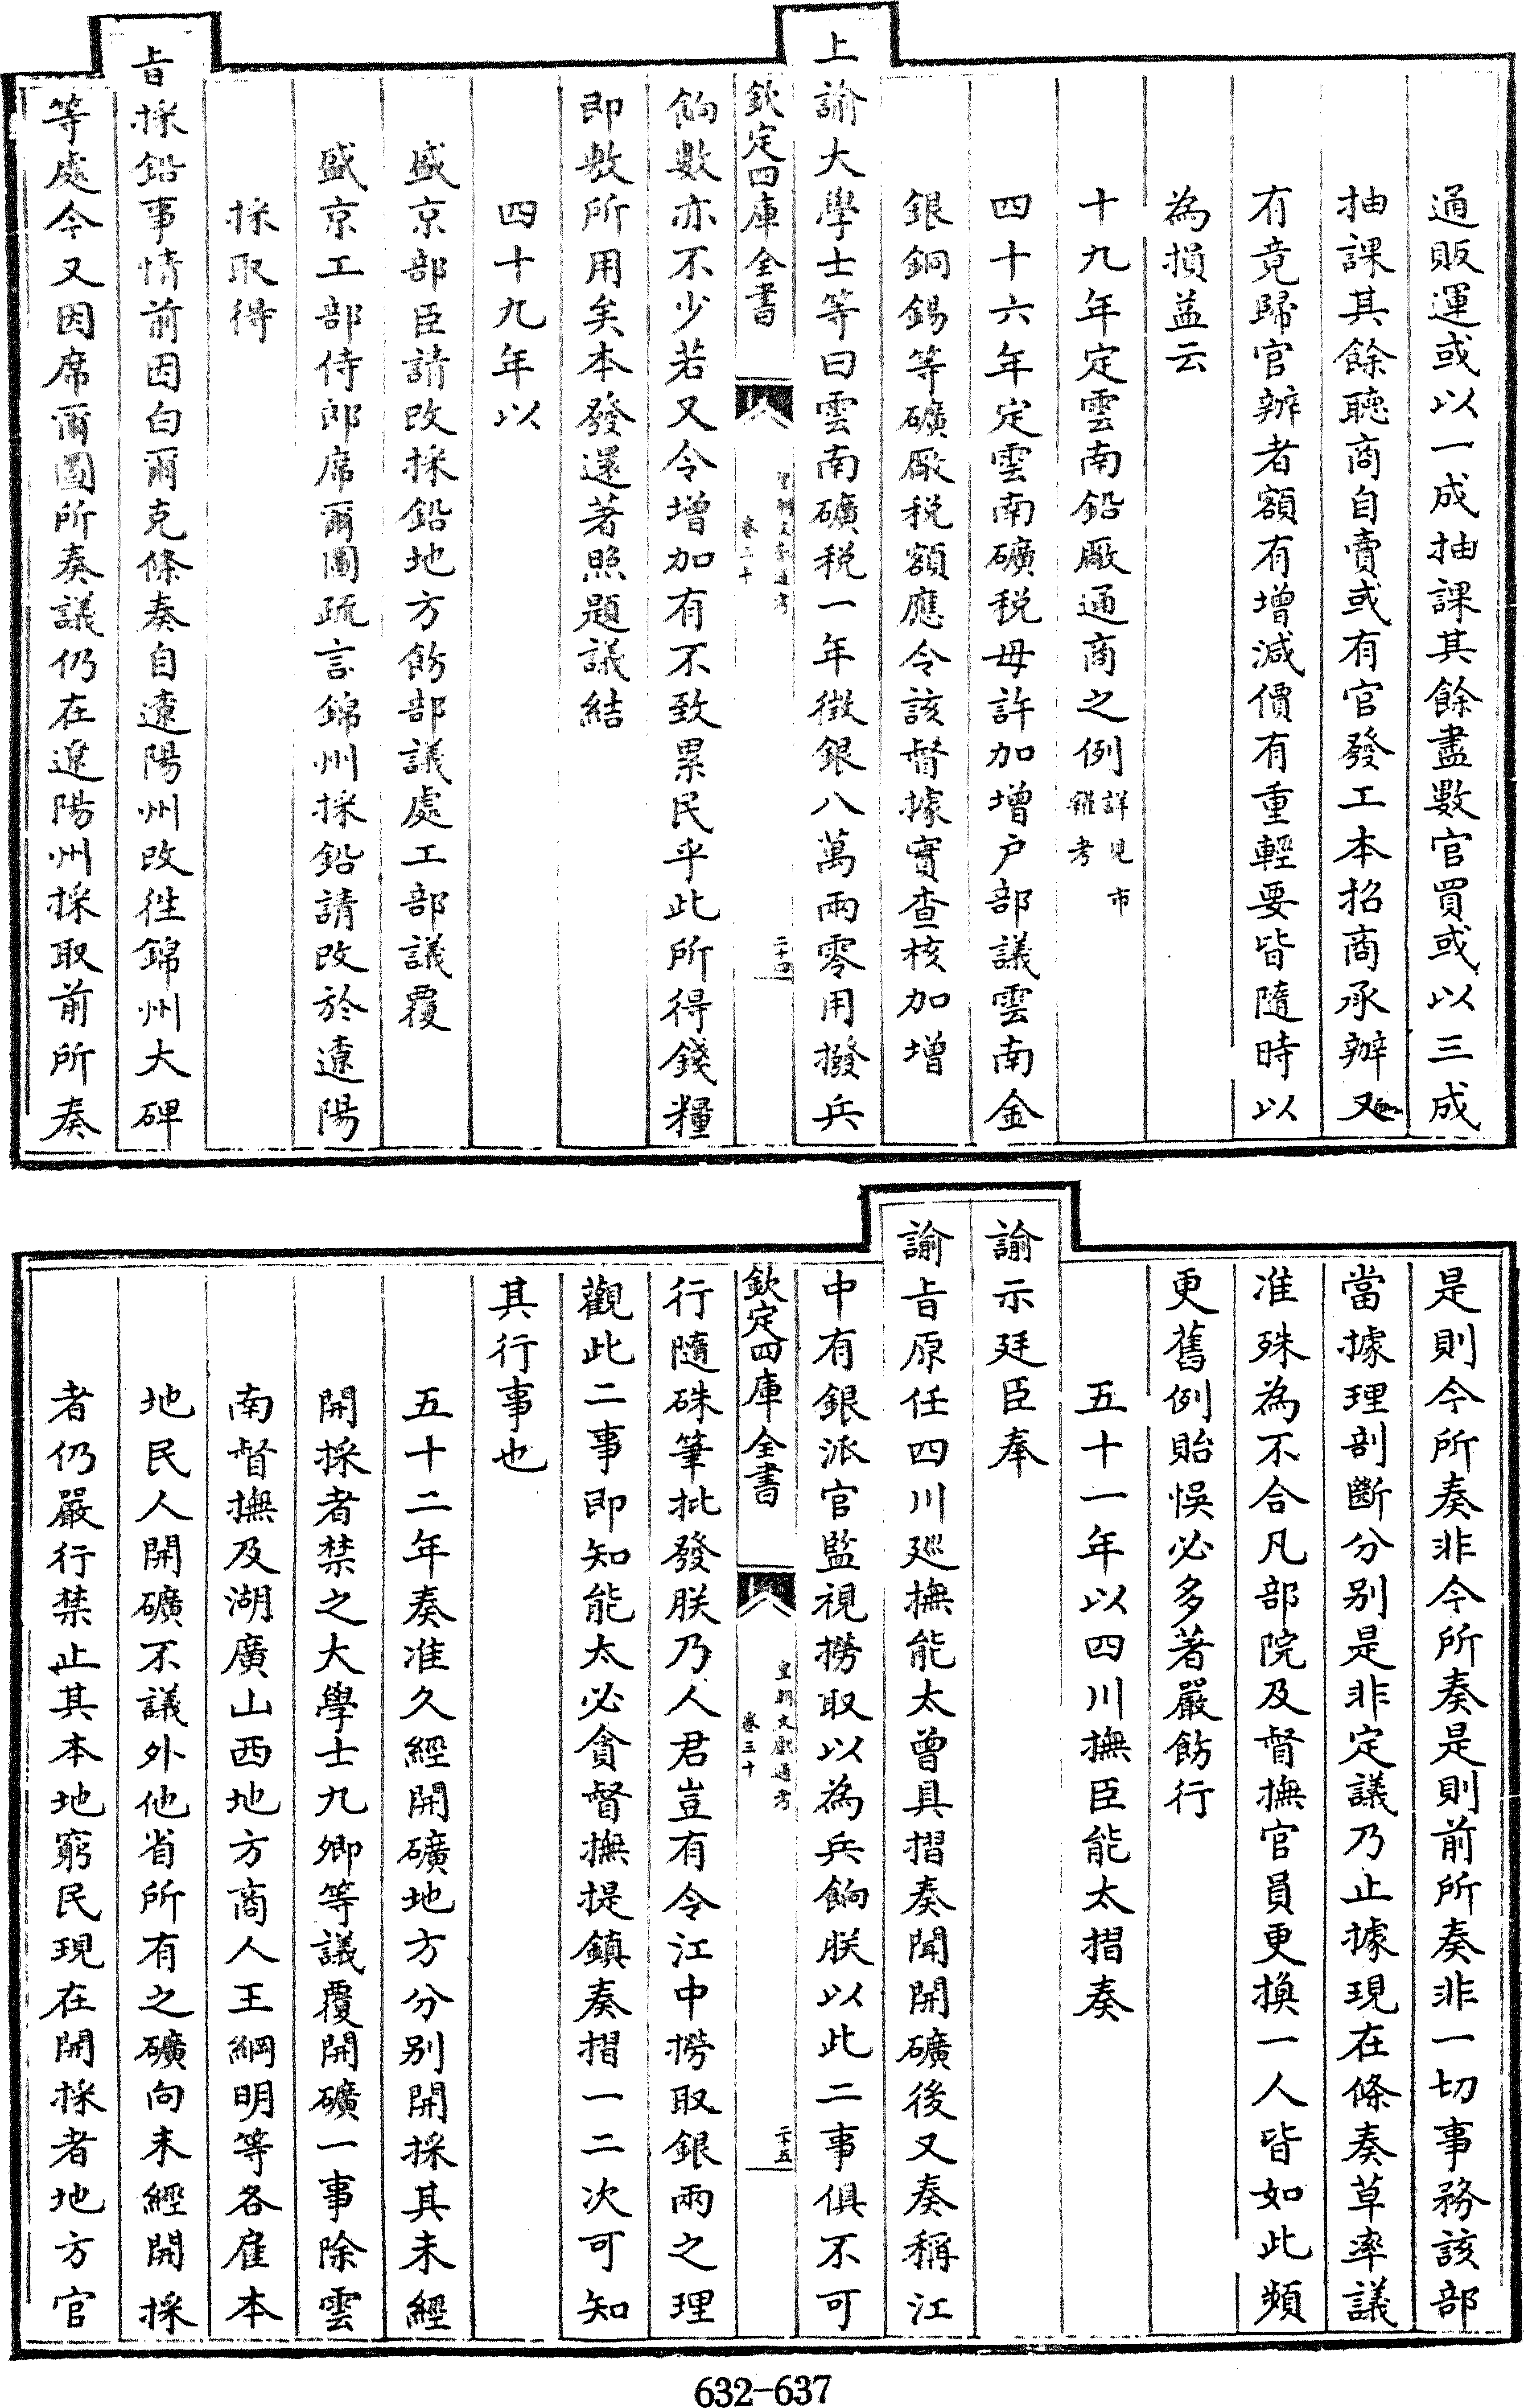 通販運或以一成抽課其餘盡數官買或以三成
抽課其餘聽商自賣或有官發工本招商承辦又
有竟歸官辦者額有增減價有重輕要皆隨時以
為損益云
十九年定雲南鉛廠通商之例詳見市糴考
四十六年定雲南礦税毋許加增户部議雲南金
銀銅錫等礦厰税額應令該督據實查核加增
上諭大學士等曰雲南礦税一年徴銀八萬兩零用撥兵
欽定四庫全書
皇朝文獻通考
卷三十
二十四
餉數亦不少若又令增加有不致累民乎此所得錢糧
即敷所用矣本發還著照題議結
四十九年以
盛京部臣請改採鉛地方飭部議處工部議覆
盛京工部侍郎席爾圖疏言錦州採鉛請改於遼陽
採取得
旨採鉛事情前因白爾克條奏自遼陽州改徃錦州大碑
等處今又因席爾圖所奏議仍在遼陽州採取前所奏
是則今所奏非今所奏是則前所奏非一切事務該部
當據理剖斷分别是非定議乃止據現在條奏草率議
准殊為不合凡部院及督撫官員更換一人皆如此頻
更舊例貽悞必多著嚴飭行
五十一年以四川撫臣能太摺奏
諭示廷臣奉
諭旨原任四川廵撫能太曾具摺奏聞開礦後又奏稱江
中有銀派官監視撈取以為兵餉朕以此二事俱不可
欽定四庫全書
皇朝文獻通考
卷三十
二十五
行隨硃筆批發朕乃人君豈有令江中撈取銀兩之理
觀此二事即知能太必貪督撫提鎮奏摺一二次可知
其行事也
五十二年奏准久經開礦地方分别開採其未經
開採者禁之大學士九卿等議覆開礦一事除雲
南督撫及湖廣山西地方商人王綱明等各雇本
地民人開礦不議外他省所有之礦向未經開採
者仍嚴行禁止其本地窮民現在開採者地方官
632-637